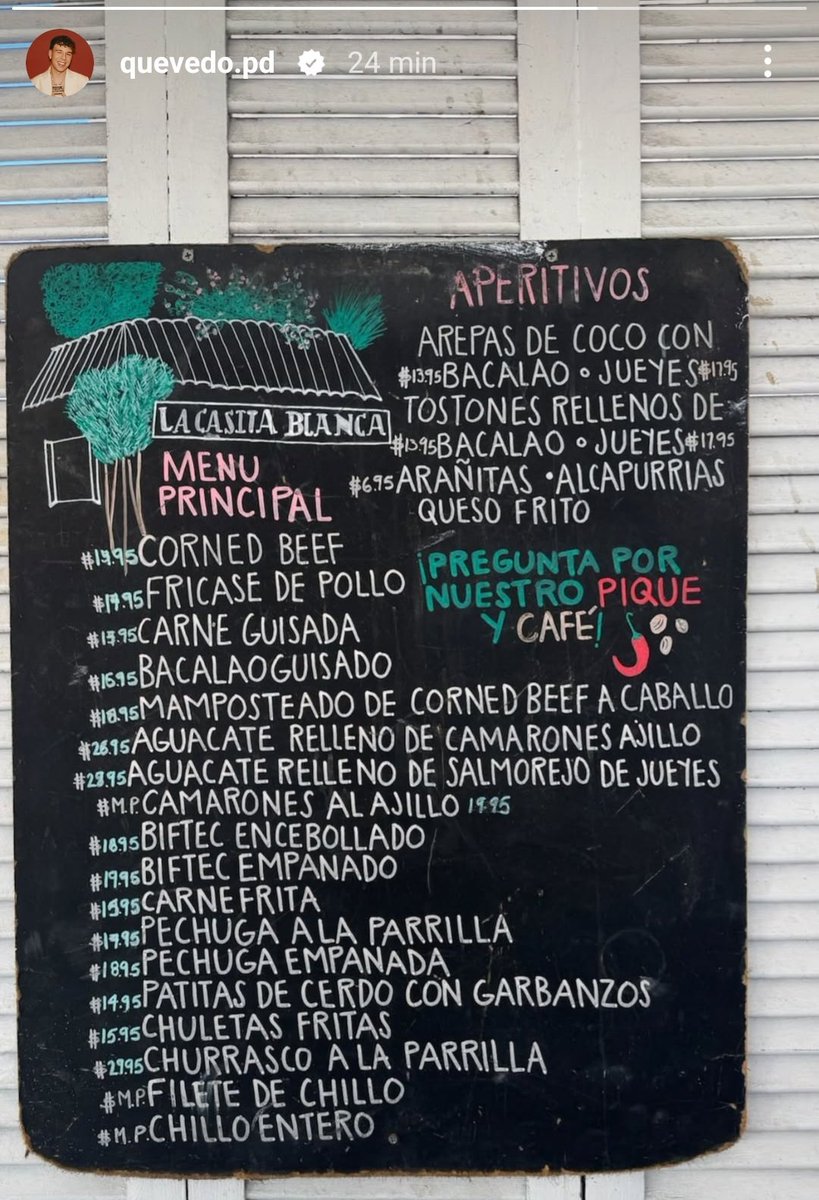 quevedo.pd 24 min
LA CASITA BLANCA
MENU
PRINCIPAL
$19.95 CORNED BEEF
$17.95 FRICASE DE POLLO
$17.95 CARNE GUISADA
$16.95 BACALAO GUISADO
$18.95 MAMPOSTEADO DE CORNED BEEF A CABALLO
$26.95 AGUACATE RELLENO DE CAMARONES AJILLO
$28.95 AGUACATE RELLENO DE SALMOREJO DE JUEYES
$M.P. CAMARONES AL AJILLO 19.95
$18.95 BIFTEC ENCEBOLLADO
$19.95 BIFTEC EMPANADO
$15.95 CARNE FRITA
$17.95 PECHUGA A LA PARRILLA
$18.95 PECHUGA EMPANADA
$14.95 PATITAS DE CERDO CON GARBANZOS
$15.95 CHULETAS FRITAS
$27.95 CHURRASCO A LA PARRILLA
$M.P. FILETE DE CHILLO
$M.P. CHILLO ENTERO
APERITIVOS
AREPAS DE COCO CON
$13.95 BACALAO • JUEYES $17.95
TOSTONES RELLENOS DE
$13.95 BACALAO • JUEYES $17.95
$6.95 ARAÑITAS • ALCAPURRIAS
QUESO FRITO
¡PREGUNTA POR
NUESTRO PIQUE
Y CAFÉ!